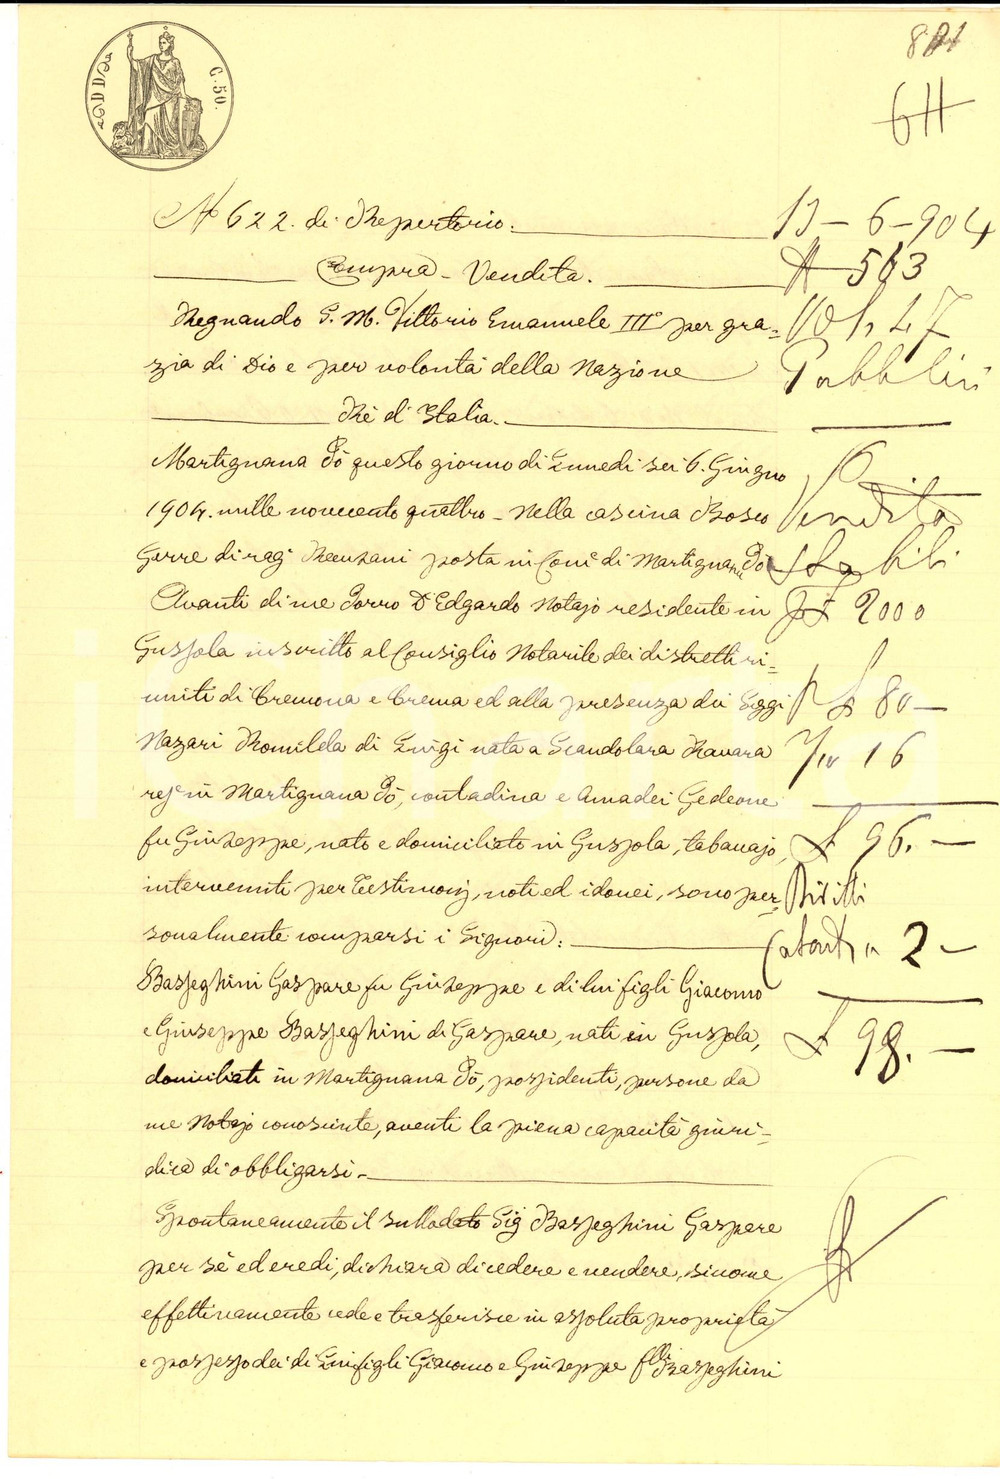 C. 50.
611
N° 622. di Repertorio.
13 - 6 - 904
Compra - Vendita.
N 563
Regnando S. M. Vittorio Emanuele III° per gra-
Vol. 47
zia di Dio e per volontà della Nazione
Pubblici
Rè d'Italia.
Martignana Pò questo giorno di Lunedì sei 6. Giugno
1904. mille novecento quattro - Nella cascina Bosco
Vendita
Gerre di rag. Ranzani posta in Com.e di Martignana Pò
Stabili
Avanti di me Porro D.r Edgardo Notajo residente in
2000
Gussola inscritto al Consiglio Notarile dei distretti ri-
uniti di Cremona e Crema ed alla presenza dei Sigg.i
£ 80 -
Nazari Romilda di Luigi nata a Scandolara Ravara
16
res.e in Martignana Pò, contadina e Amadei Gedeone
fu Giuseppe, nato e domiciliato in Gussola, tabaccajo,
£ 96. -
intervenuti per testimonj, noti ed idonei, sono per-
Diritti
sonalmente comparsi i Signori:
Catasto 2 -
Basseghini Gaspare fu Giuseppe e di lui figli Giacomo
e Giuseppe Basseghini di Gaspare, nati in Gussola,
£ 98. -
domiciliati in Martignana Pò, possidenti, persone da
me Notajo conosciute, aventi la piena capacità giuri-
dica di obbligarsi.
Spontaneamente il sullodato Sig. Basseghini Gaspare
per sè ed eredi, dichiara di cedere e vendere, siccome
effettivamente cede e trasferisce in assoluta proprietà
e possesso dei di Lui figli Giacomo e Giuseppe f.lli Basseghini